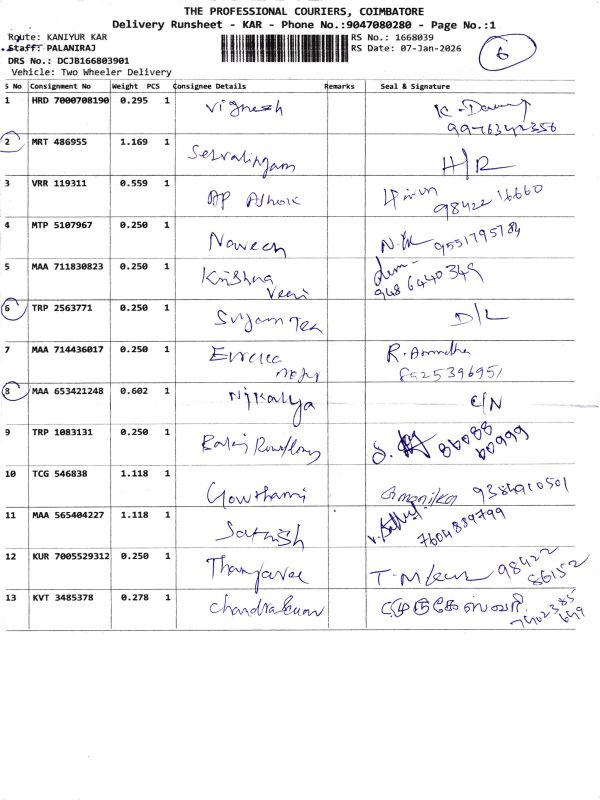 THE PROFESSIONAL COURIERS, COIMBATORE
Delivery Runsheet - KAR - Phone No.:9047080280 - Page No.:1
Route: KANIYUR KAR RS No.: 1668039
Staff: PALANIRAJ RS Date: 07-Jan-2026 6
DRS No.: DCJB166803901
Vehicle: Two Wheeler Delivery
S No Consignment No Weight PCS Consignee Details Remarks Seal & Signature
1 HRD 7000708190 0.295 1 Vignesh
9976342356
2 MRT 486955 1.169 1 Selvalingam H/R
3 VRR 119311 0.559 1 AP Ashok
98422 16660
4 MTP 5107967 0.250 1 Naveen 9551795784
5 MAA 711830823 0.250 1 Krishna
Veni 9486440349
6 TRP 2563771 0.250 1 D/L
7 MAA 714436017 0.250 1 R.
8925396951
8 MAA 653421248 0.602 1 C/N
9 TRP 1083131 0.250 1 Balaji 86088
60999
10 TCG 546838 1.118 1 Gowthami 9384910501
11 MAA 565404227 1.118 1 Sathish 7604889799
12 KUR 7005529312 0.250 1 98422
86152
13 KVT 3485378 0.278 1 முருகேஸ்வரி